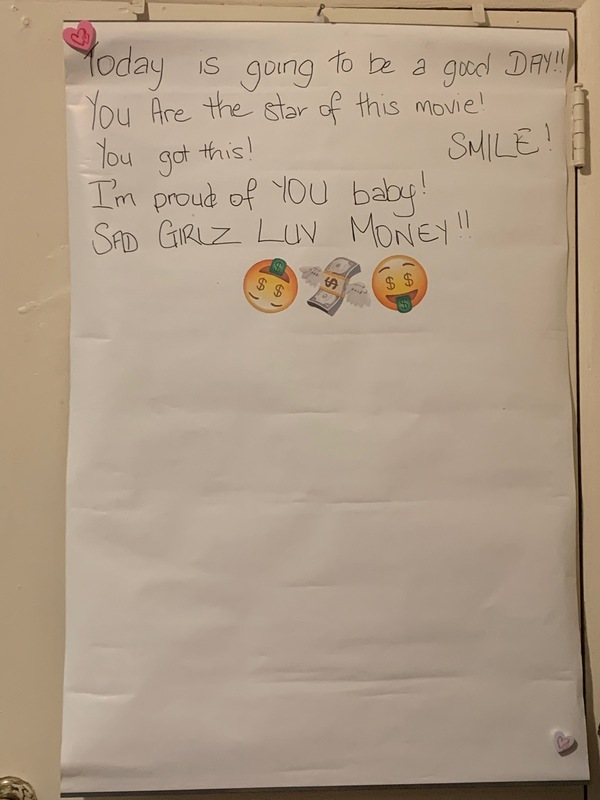 Today is going to be a good DAY!!
You Are the star of this movie!
You got this! SMILE!
I'm proud of YOU baby!
SAD GIRLZ LUV MONEY!!